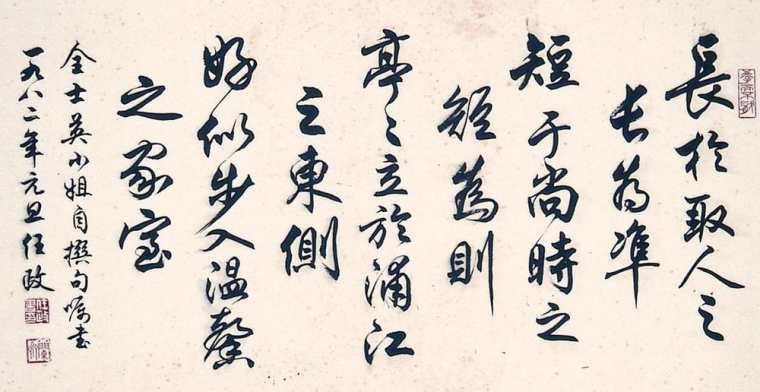 長於取人之
长为準
短于尚時之
短爲則
亭〻立於浦江
之東側
好似步入温馨
之家室
金士英小姐自撰句嘱书
一九八二年元旦任政